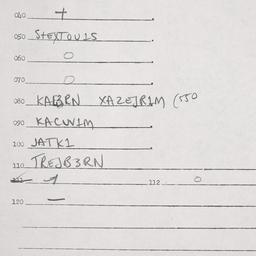 040 +
050 StEXTOU1S
060 O
070 O
080 KABRN XAZEJR1M (550
090 KACUV1M
100 JATK1
110 TREJB3RN
112 O
120 —